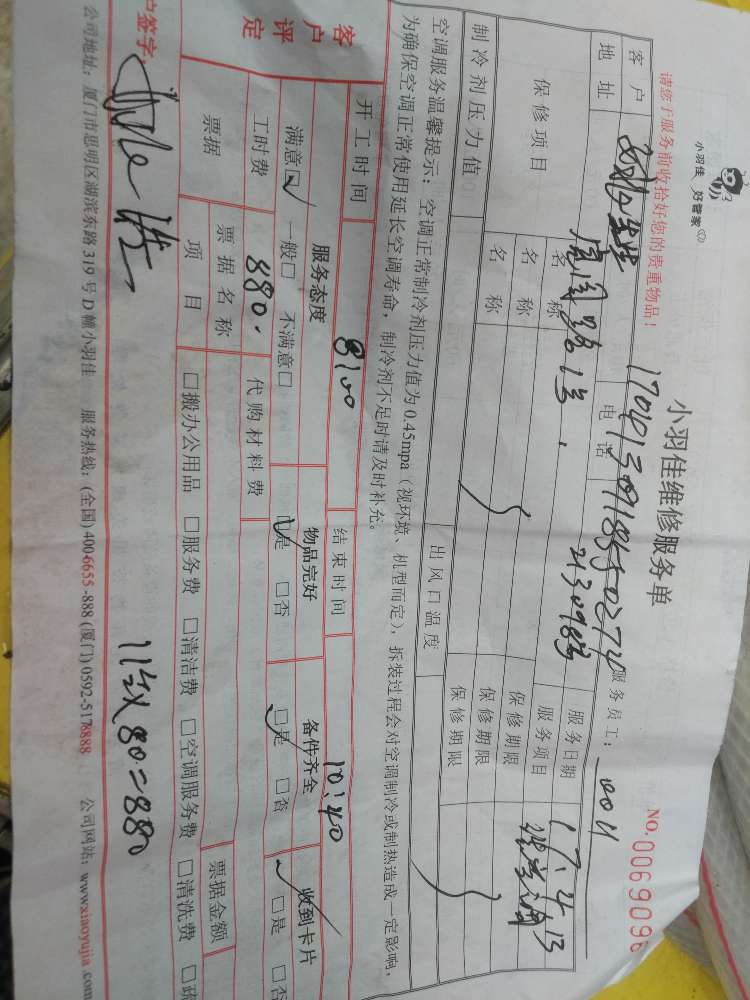 小羽佳 好管家
小羽佳维修服务单
NO. 0069096
请您于服务前收拾好您的贵重物品！
服务员工：
客户 电话 服务日期 17.4.13
地址 服务项目
保修项目 名称 保修期限
名称 保修期限
名称 保修期限
制冷剂压力值 出风口温度
空调服务温馨提示：空调正常制冷剂压力值为0.45mpa（视环境、机型而定），拆装过程会对空调制冷或制热造成一定影响，
为确保空调正常使用延长空调寿命，制冷剂不足时请及时补充。
开工时间 8:00 结束时间 10:40
客户评定
服务态度 物品完好 备件齐全 收到卡片
满意☑ 一般□ 不满意□ ☑是 □否 ☑是 □否 ☑是 □否
工时费 880. 代购材料费
票据 票据名称 票据金额
项目 □搬办公用品 □服务费 □清洁费 □空调服务费 □清洗费
户签字
11台×80=880
公司地址：厦门市思明区湖滨东路319号D幢小羽佳 服务热线：(全国)400-6655-888 (厦门)0592-5178888 公司网站：www.xiaoyujia.com